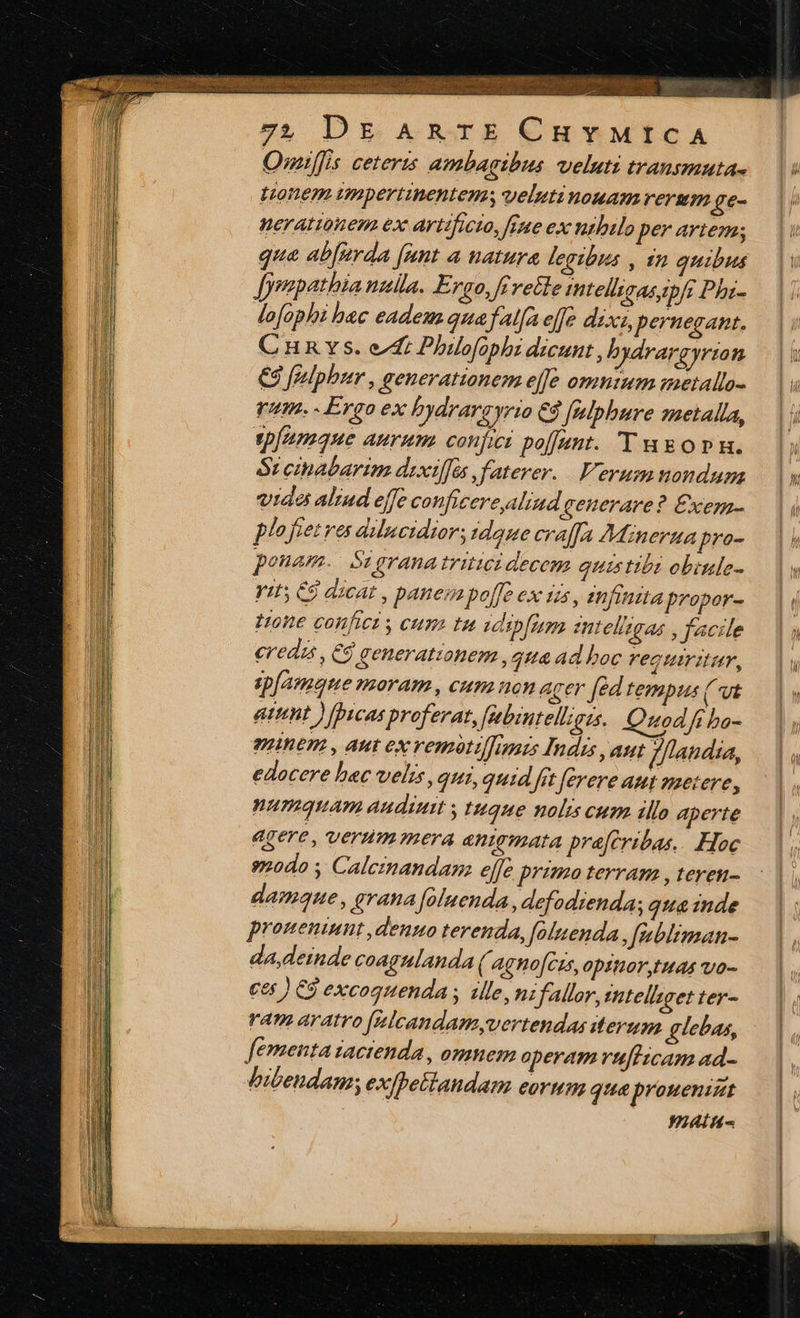 72 DE ARTE CHYMICA
Omiſſis ceteris ambagibus veluti transmuta-
tionem impertinentem; veluti nouam rerum ge-
nerationem ex artificio, ſiue ex nihilo per artem;
quæ abſurda ſunt a naturæ legibus, in quibus
ſympathia nulla. Ergo, ſi recte intelligas, ipſi Phi-
loſophi hæc eadem quæ falſa eſſe dixi, pernegant.
CHRYS. At Philoſophi dicunt, hydrargyrion
& ſulphur, generationem eſſe omnium metallo-
rum. Ergo ex hydrargyrio & ſulphure metalla,
ipſumque aurum confici poſſunt. THEOPH.
Si cinabarim dixiſſes, faterer. Verum nondum
vides aliud eſſe conficere, aliud generare? Exem-
plo fiet res dilucidior; idque craſſa Minerua pro-
ponam. Si grana tritici decem quis tibi obtule-
rit; & dicat, panem poſſe ex iis, infinita propor-
tione confici; cum tu idipſum intelligas, facile
credis, & generationem, quæ ad hoc requiritur,
ipſamque moram, cum non ager ſed tempus (vt
aiunt) ſpicas proferat, ſubintelligis. Quod ſi ho-
minem, aut ex remotiſſimis Indis, aut Iſlandia,
edocere hæc velis, qui, quid ſit ſerere aut metere,
numquam audiuit; tuque nolis cum illo aperte
agere, verùm mera ænigmata præſcribas. Hoc
modo; Calcinandam eſſe primo terram, teren-
damque, grana ſoluenda, defodienda; quæ inde
proueniunt, denuo terenda, ſoluenda, ſubliman-
da, deinde coagulanda (agnoſcis, opinor, tuas vo-
ces) & excoquenda; ille, ni fallor, intelliget ter-
ram aratro ſulcandam, vertendas iterum glebas,
ſementa iacienda, omnem operam ruſticam ad-
hibendam; exſpectandam eorum quæ proueniūt
matu-